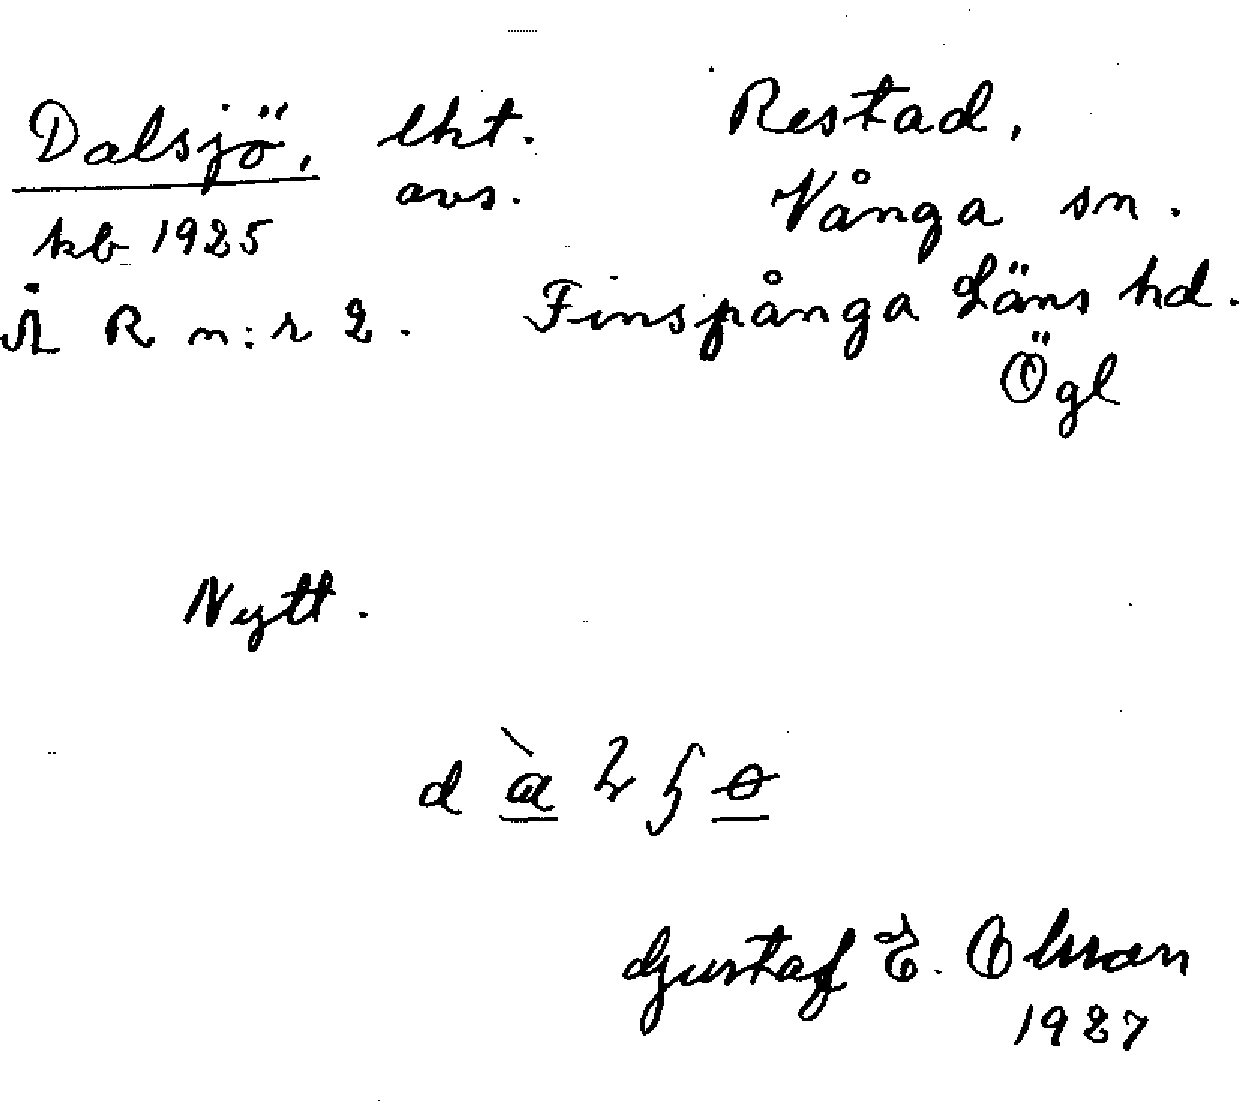 Dalsjö, lht. Restad,
avs. Vånga sn.
kb 1925
R n:r 2. Finspånga Läns hd.
Ögl
Nytt.
Gustaf E. Olsson
1927